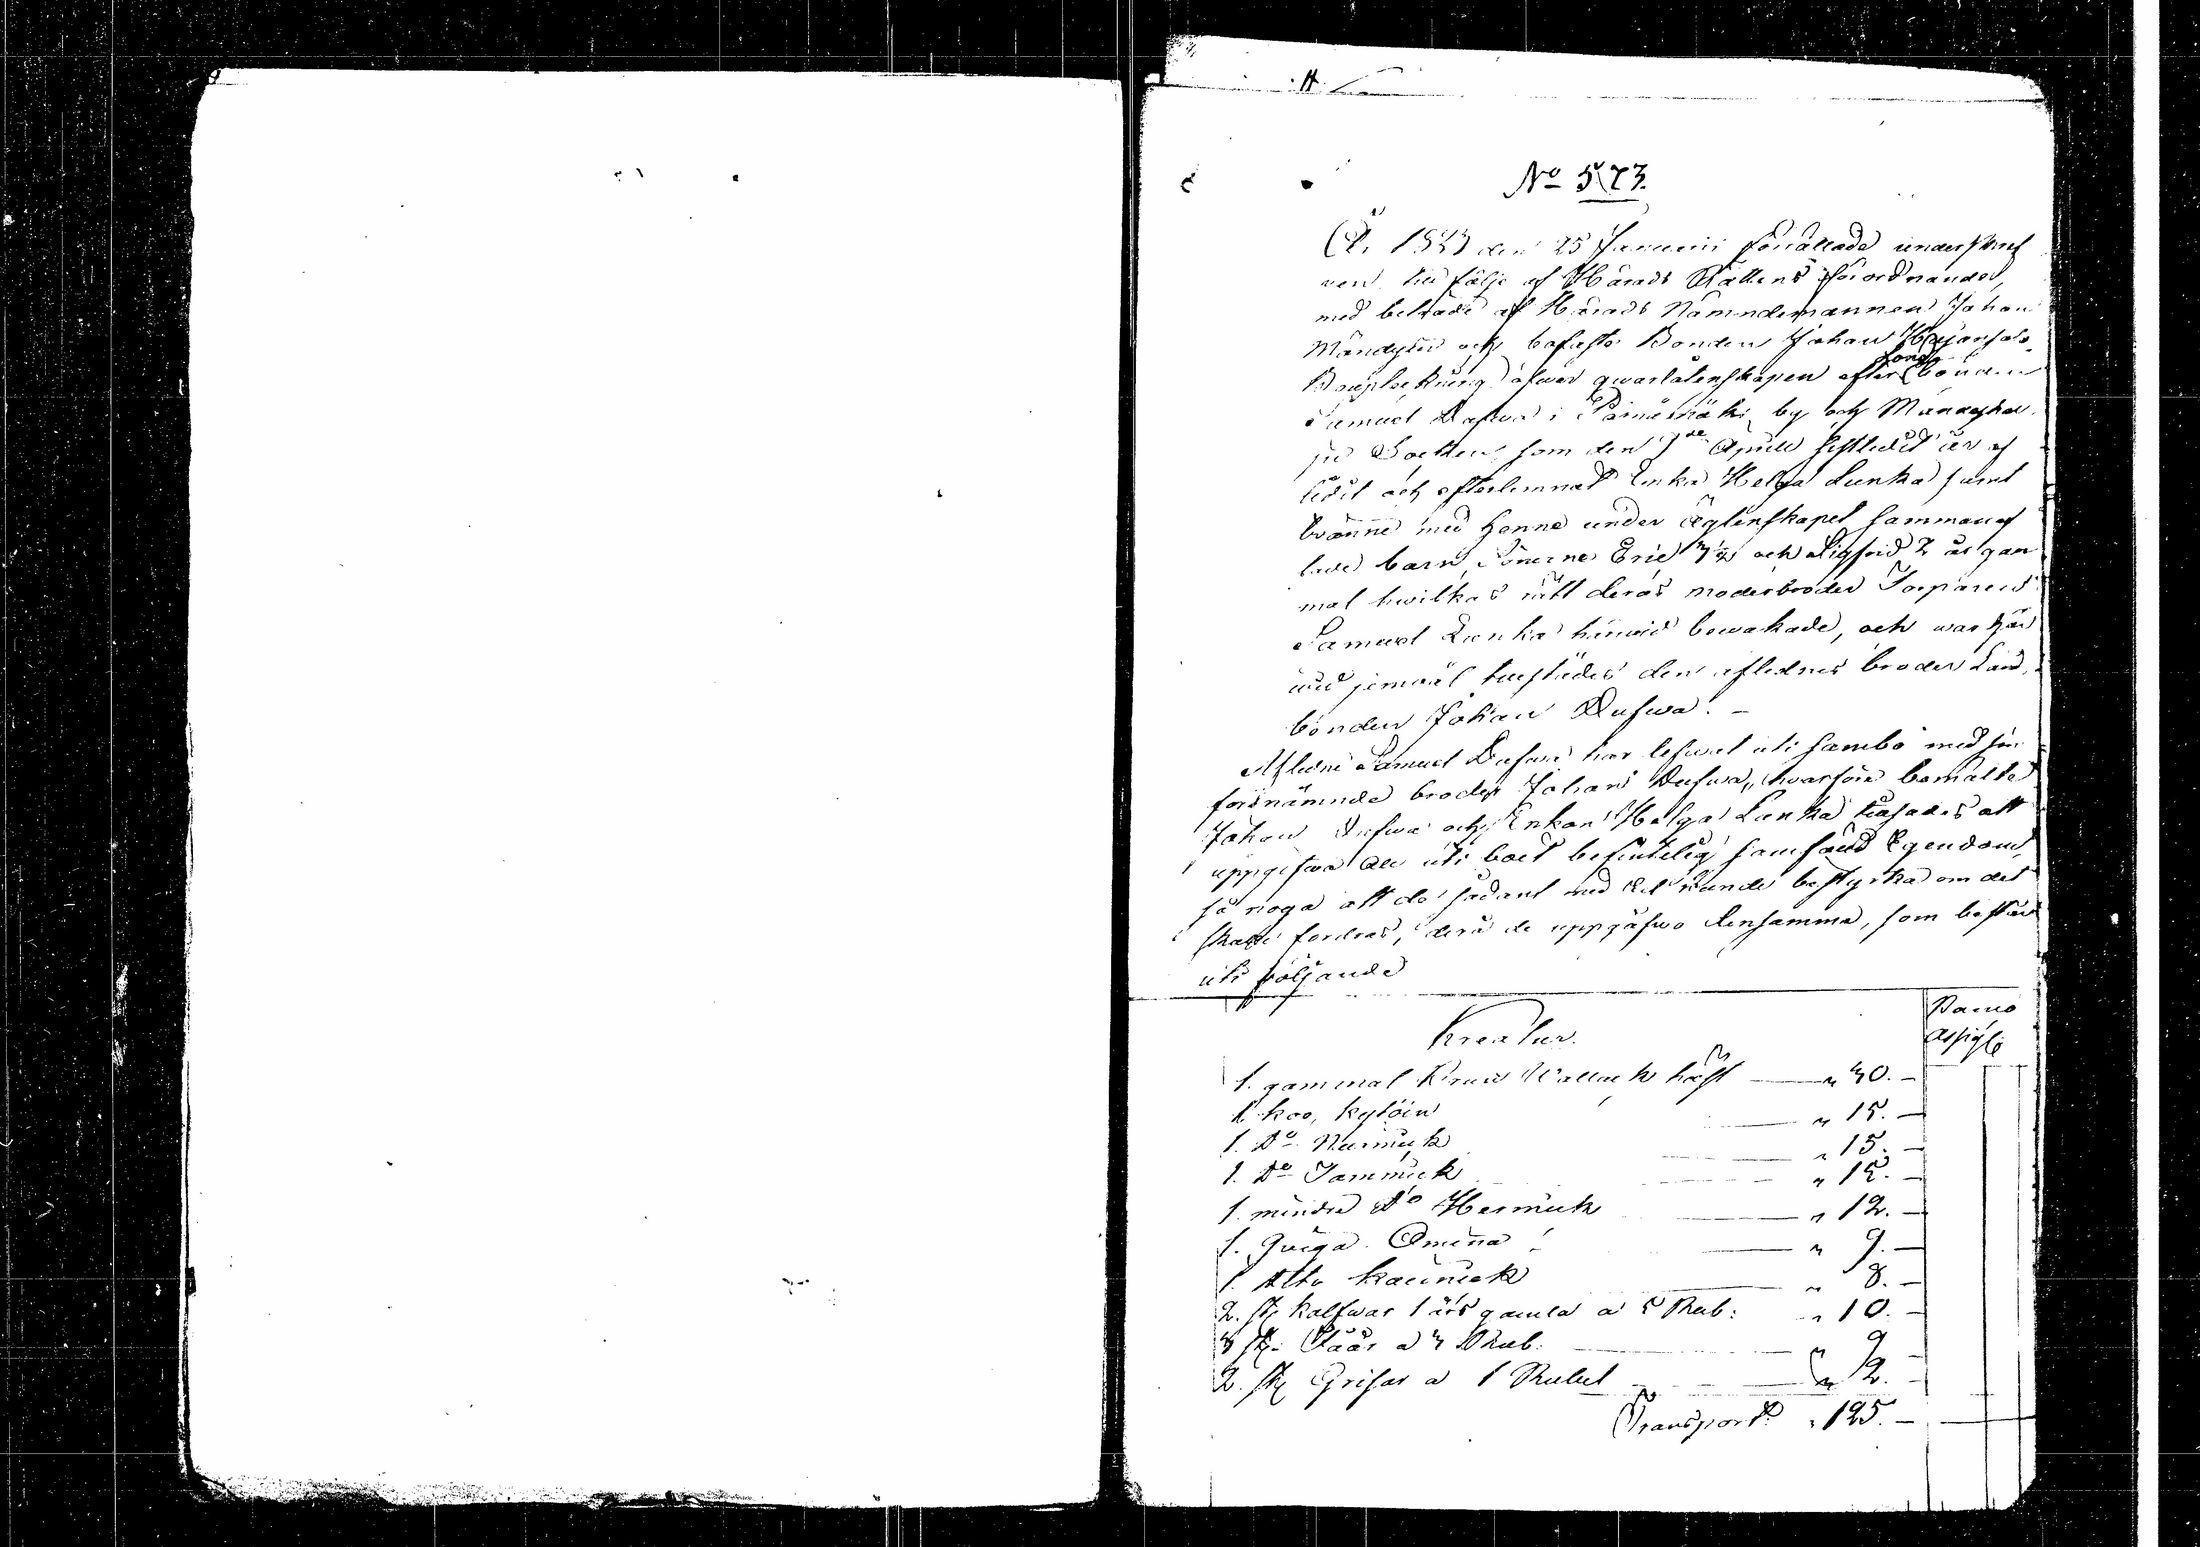 No 573.
År 1843 den 25 Januarii förrättade underskref
ven till följe af Härads Rättens förordnande,
med beträde af Härads Nämndemannen Johan
och Bonden Johan
Bouptekning öfwer qwarlåtenskapen efter Land bonden
Samuel Dufwa i by och
Socken, som den 7de April sistledit år af
lidit och efterlemnat Enka Helga Lunka samt
tvänne med henne under Ägtenskapet samman af
lade barn, Sönerne Eric 3½ och Sigfrid 2 år gam
mal hwilkas rätt deras moderbroder Torparen
Samuel Lunka härwid bewakade, och war här
wid jemwäl tillstädes den aflednes broder Land
bonden Johan Dufwa. –
Afledne Samuel Dufwa har lefwat uti sambo med sin
förnämnde broder Johan Dufwa, hvarföre bemälte
Johan Dufwa och Enkan Helga Lunka att
uppgifwa all uti boet befintelig samfäld Egendom,
så noga att de sådant med Ed kunde bestyrka om det
skulle fordras, derå de uppgåfwo densamma, som består
uti följande
Banco
Assigt:
Kreatur.
1. gammal Brun Wallack häst — " 40. –
1. koo, Kytöin — " 15. –
1. Do Nurmick — " 15. –
1. Do Tammick — " 15. –
1. mindre Do Hermick — " 12. –
1. Qviga Omena — " 9. –
1. dito Kaunick — " 8. –
2. st. kalfwar 1 års gamla a 5 Rub: " 10. –
3 st. Fåår a 3 Rub. — " 9 –
2. st. Grisar a 1 Rubel — " 2. –
Transport " 125. –